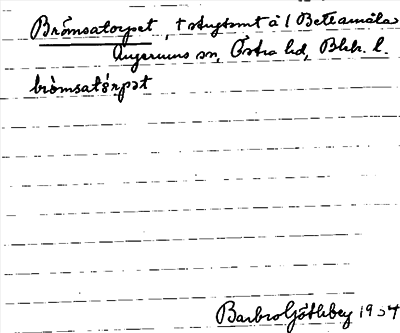 Brömsatorpet, † stugtomt å 1 Betesmåla
Ångerums sn, Östra hd, Blek. l.
brömsatórpət
Barbro Götheberg 1954